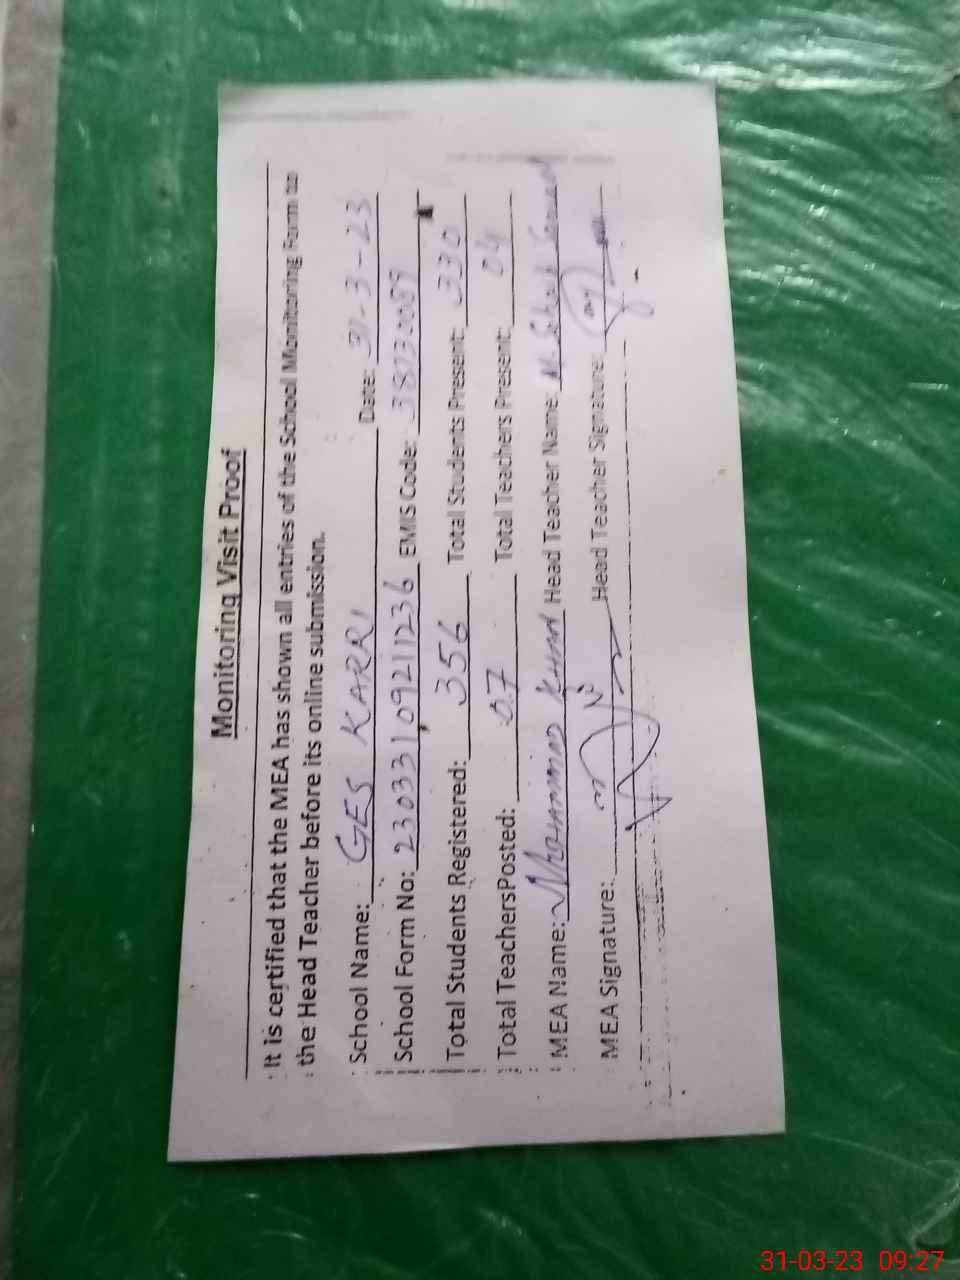 Monitoring Visit Proof
It is certified that the MEA has shown all entries of the School Monitoring Form to
the Head Teacher before its online submission.
School Name: GES KARRI Date: 31-3-23
School Form No: 230331109211236 EMIS Code: 38730089
Total Students Registered: 356 Total Students Present: 330
Total TeachersPosted: 07 Total Teachers Present: 04
MEA Name: Mohammad Khan Head Teacher Name: M.
MEA Signature: Head Teacher Signature:
31-03-23 09:27